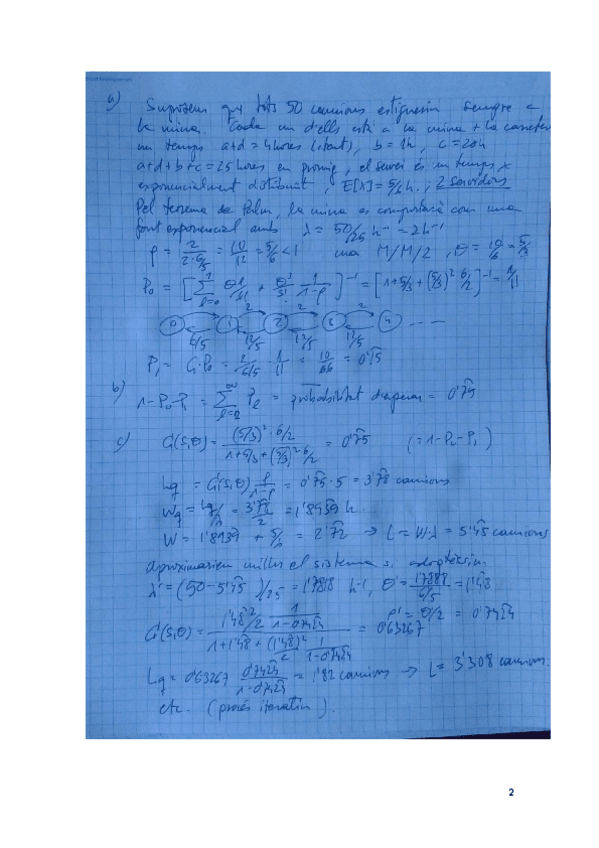 a) Suposem que tots 50 camions estiguessin sempre a
la mina. Cada un d'ells està a la mina + la carretera
un temps a+d = 4 hores (), b = 1h, c = 20h
a+d+b+c = 25 hores en promig, el servei és un temps x
exponencialment distribuït, E[x] = 5/6 h. ; 2 servidors
Pel teorema de Palm, la mina es comportarà com una
font exponencial amb λ = 50/25 h⁻¹ = 2h⁻¹
ρ = 2/(2·6/5) = 10/12 = 5/6 < 1 una M/M/2, θ = 10/6 = 5/3
P₀ = [ Σ_{l=0}^{1} θ^l/l! + θ^s/s! 1/(1-ρ) ]⁻¹ = [1+5/3+(5/3)² 6/2]⁻¹ = 1/11
0 1 2 3 4 ....
2 2 2 2
6/5 12/5 12/5 12/5
P₁ = C₁·P₀ = 2/(6/5) 1/11 = 10/66 = 0'15
b) 1-P₀-P₁ = Σ_{l=2}^{∞} P_l = probabilitat d'esperar = 0'75
c) C(s,θ) = ((5/3)²·6/2)/(1+5/3+(5/3)² 6/2) = 0'75 (= 1-P₀-P₁)
Lq = C(s,θ) ρ/(1-ρ) = 0'75·5 = 3'78 camions
Wq = Lq/λ = 3'78/2 = 1'8939 h.
W = 1'8939 + 5/6 = 2'72 → L = W·λ = 5'45 camions
Aproximaríem millor el sistema si adoptéssim:
λ' = (50-5'45)/25 = 1'7818 h⁻¹, θ' = 1'7818/(6/5) = 1'48
ρ' = θ/2 = 0'7424
C(s,θ) = (1'48²/2 1/(1-0'7424))/(1+1'48+(1'48)²/2 1/(1-0'7424)) = 0'63267
Lq = 0'63267 0'7424/(1-0'7424) = 1'82 camions → L = 3'308 camions.
etc. (procés iteratiu).
2